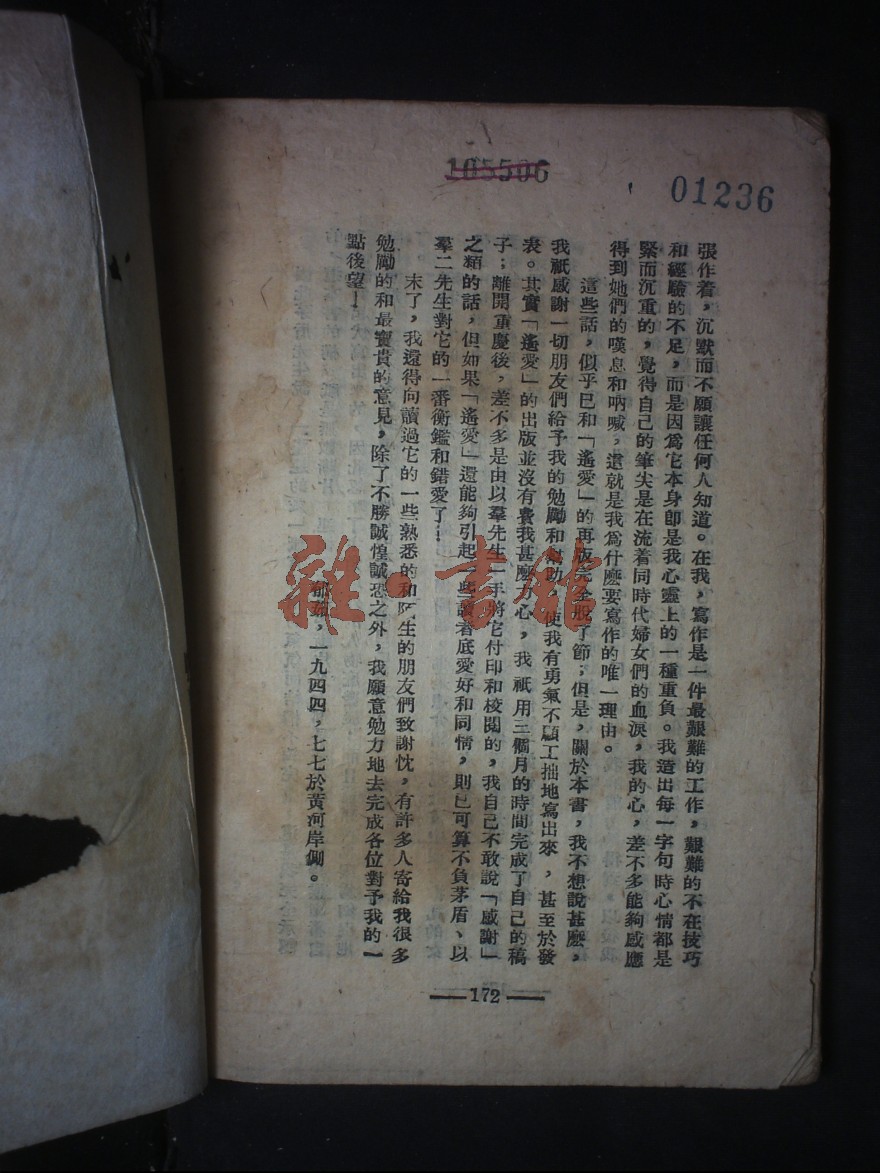 105506
01236
張作着，沉默而不願讓任何人知道。在我，寫作是一件最艱難的工作，艱難的不在技巧
和經驗的不足，而是因爲它本身卽是我心靈上的一種重負。我造出每一字句時心情都是
緊而沉重的，覺得自己的筆尖是在流着同時代婦女們的血淚，我的心，差不多能夠感應
得到她們的嘆息和吶喊，這就是我爲什麽要寫作的唯一理由。
這些話，似乎已和「遙愛」的再版完全脫了節；但是，關於本書，我不想說甚麽，
我祇感謝一切朋友們給予我的勉勵和幫助，使我有勇氣不顧工拙地寫出來，甚至於發
表。其實「遙愛」的出版並沒有費我甚麽力心，我祇用三個月的時間完成了自己的稿
子；離開重慶後，差不多是由以羣先生一手將它付印和校閱的，我自己不敢說「感謝」
之類的話，但如果「遙愛」還能夠引起一些讀者底愛好和同情，則已可算不負茅盾、以
羣二先生對它的一番衡鑑和錯愛了！
末了，我還得向讀過它的一些熟悉的和陌生的朋友們致謝忱，有許多人寄給我很多
勉勵的和最寶貴的意見，除了不勝誠惶誠恐之外，我願意勉力地去完成各位對予我的一
點後望！
郁茹，一九四四，七七於黃河岸側。
172
雜·書館